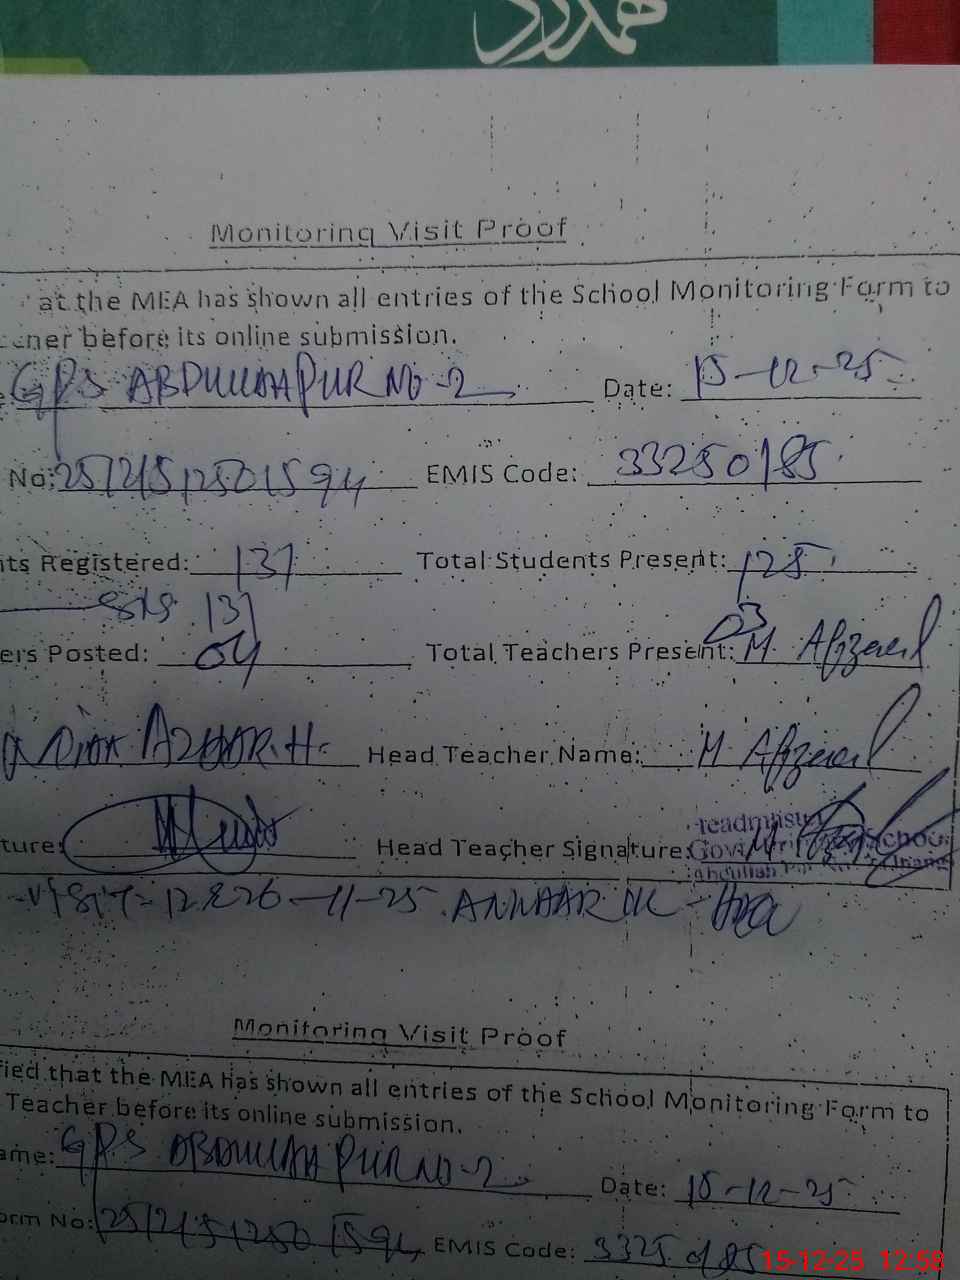 ہمدرد
Monitoring Visit Proof
at the MEA has shown all entries of the School Monitoring Form to
before its online submission.
GPS ABDULLAHPUR NO-2 Date: 15-12-25
No: EMIS Code: 33250185
ts Registered: 131 Total Students Present: 125
SIS 131
03
ers Posted: 04 Total Teachers Present: M. Afzaal
AZHAR.H. Head Teacher Name: M. Afzaal
ture: Head Teacher Signature:
Visit = 12 & 26-11-25
Monitoring Visit Proof
fied that the MEA has shown all entries of the School Monitoring Form to
Teacher before its online submission.
ame: GPS ABDULLAHPUR NO-2 Date: 15-12-25
orm No: EMIS Code: 33250185
15-12-25 12:58